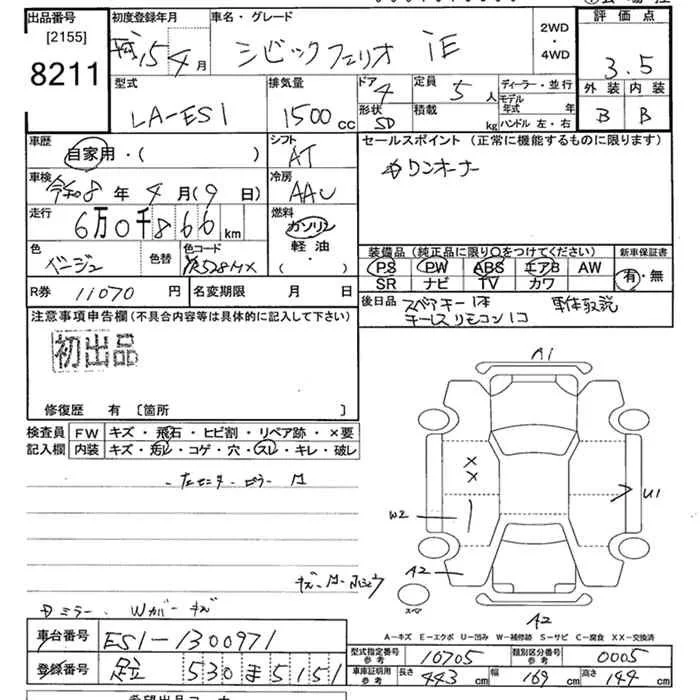 出品番号 初度登録年月 車名・グレード 2WD・4WD 評価点
[2155]
8211
15年4月 シビックフェリオ iE 3.5
型式 排気量 ドア 定員 ディーラー・並行 外装 内装
LA-ES1 1500cc 4 5人 モデル年式 年 B B
形状 積載 ハンドル 左・右
SD kg
車歴 シフト セールスポイント(正常に機能するものに限ります)
自家用・( ) AT ワンオーナー
車検 冷房
令和8年4月(9日) AAC
走行 燃料
6万0千866km ガソリン 軽油・( )
色 色替 色コード
ベージュ YR528MX
装備品(純正品に限り○をつけてください) 新車保証書
PS PW ABS エアB AW 有・無
SR ナビ TV カワ
R券 11070円 名変期限 月 日
後日品 スペアキー1本 車体取説
キーレスリモコン1コ
注意事項申告欄(不具合内容等は具体的に記入して下さい)
初出品
修復歴 有 [箇所 ]
検査員 FW キズ・飛石・ヒビ割・リペア跡・×要
記入欄 内装 キズ・汚レ・コゲ・穴・スレ・キレ・破レ
A1
×
×
U1
W2
A2
スペア
A2
A-キズ E-エクボ U-凹み W-補修跡 S-サビ C-腐食 XX-交換済
車台番号 ES1-1300971
登録番号 足立 530 ま 5151
型式指定番号 参考 10705 類別区分番号 参考 0005
車庫証明用 参考 長さ 443cm 幅 169cm 高さ 144cm
希望出品コーナー